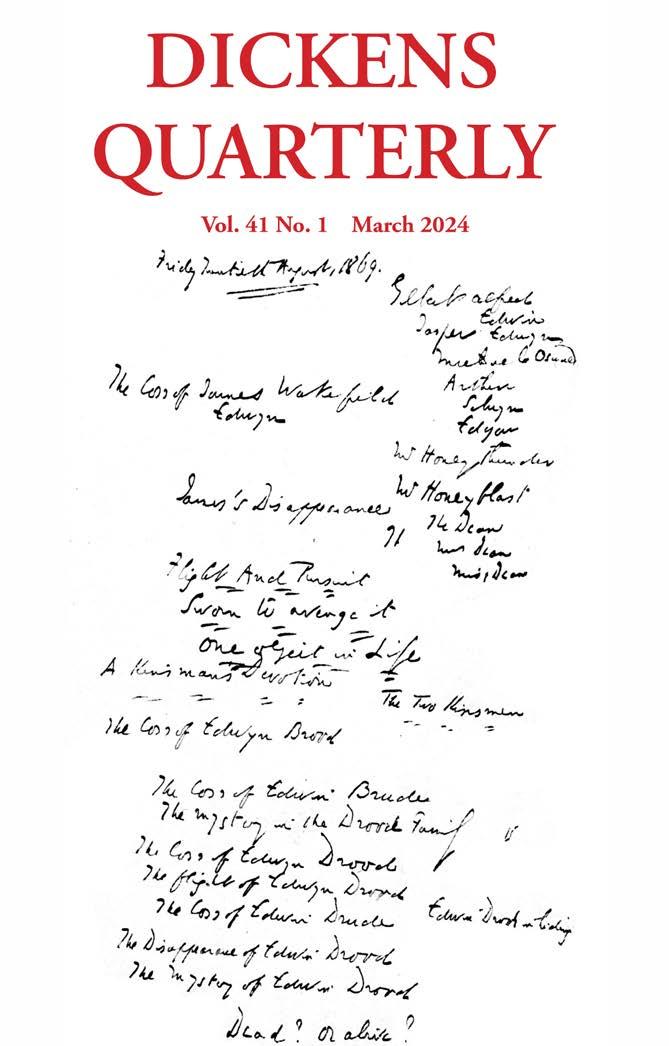 DICKENS
QUARTERLY
Vol. 41 No. 1 March 2024
Friday Twentieth August, 1869.
Gilbert Alfred
Edwin
Jasper Edwyn
Michael Oswald
The Loss of James Wakefield
Edwyn
Arthur
Selwyn
Edgar
Mr Honeythunder
Mr Honeyblast
James's Disappearance
The Dean
Mrs Dean
Miss Dean
Flight And Pursuit
Sworn to avenge it
One object in Life
A Kinsman's Devotion
The Two Kinsmen
The Loss of Edwyn Brood
The Loss of Edwin Brude
The Mystery in the Drood Family
The Loss of Edwyn Drood
The flight of Edwyn Drood
The Loss of Edwin Drude
Edwin Drood in hiding
The Disappearance of Edwin Drood
The Mystery of Edwin Drood
Dead? Or alive?